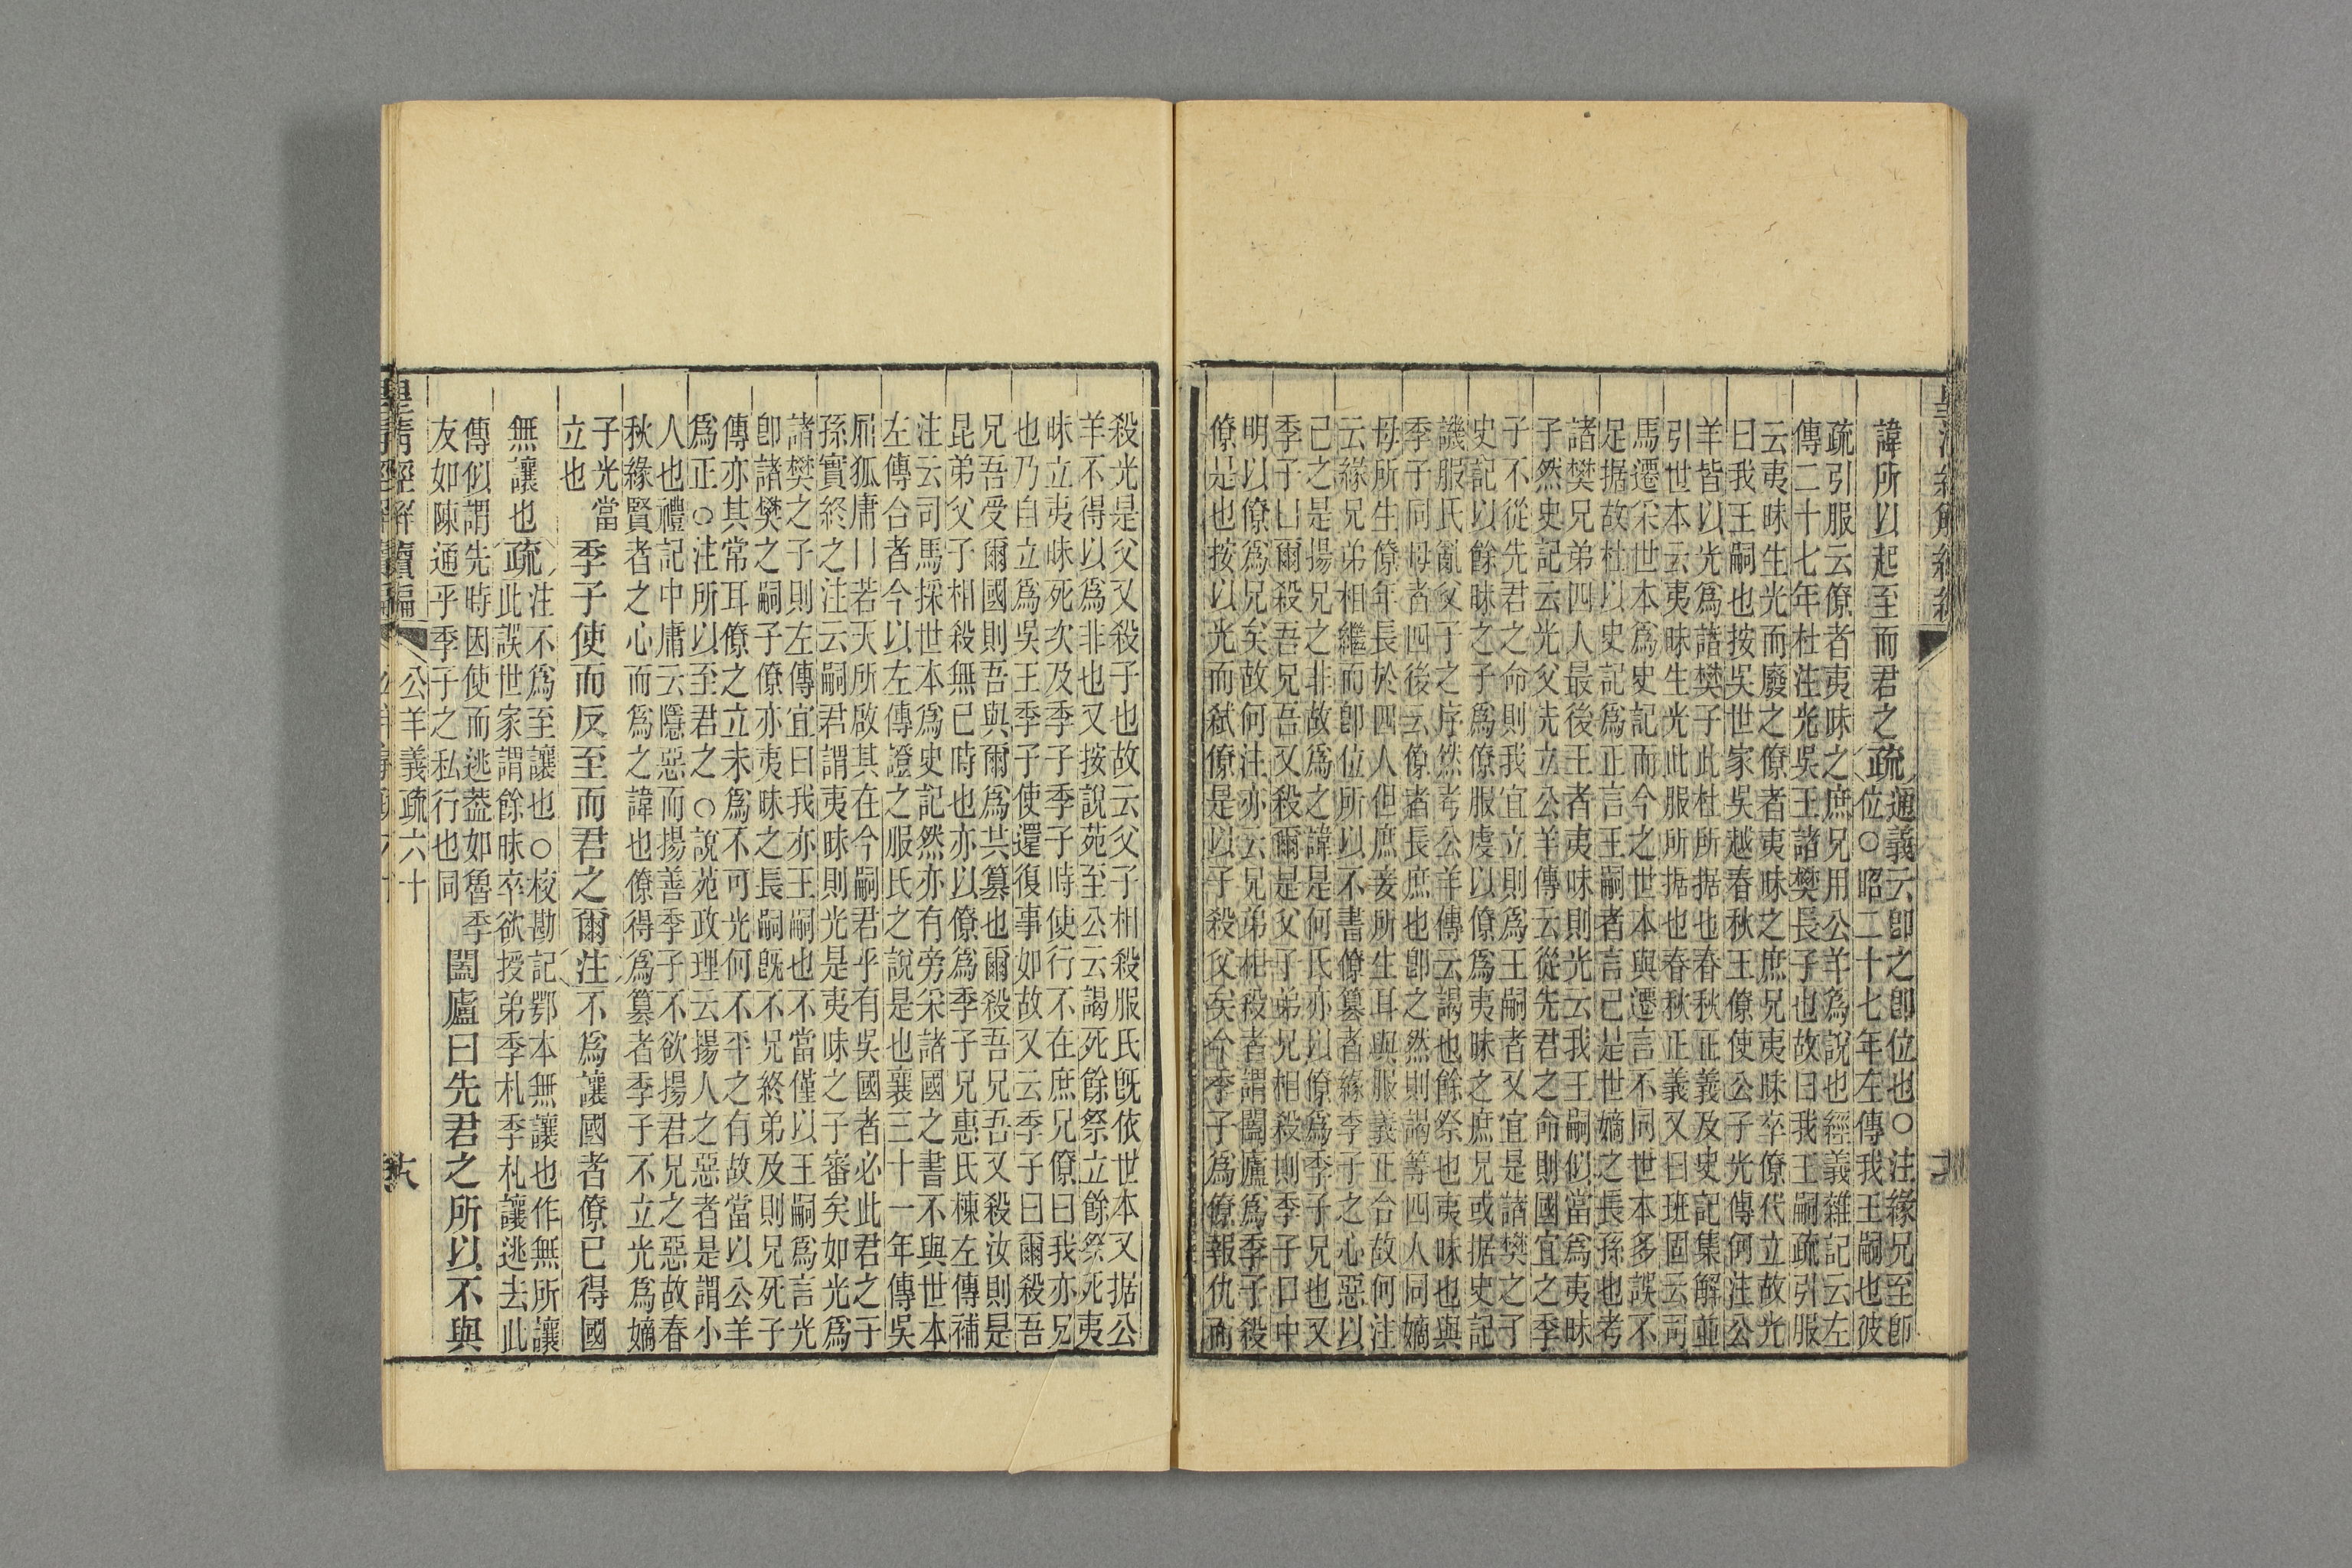 諱所以起至而君之疏
通義云卽之卽位也○注緣兄至卽
位○昭二十七年左傳我王嗣也彼
疏引服云僚者夷昧之庶兄用公羊爲說也經義雜記云左
傳二十七年杜注光吳王諸樊長子也故曰我王嗣疏引服
云夷昧生光而廢之僚者夷昧之庶兄夷昧卒僚代立故光
曰我王嗣也按吳世家吳越春秋王僚使公子光傳何注公
羊皆以光爲諸樊子此杜所据也春秋正義及史記集解並
引世本云夷昧生光此服所据也春秋正義又曰班固云司
馬遷采世本爲史記而今之世本與遷言不同世本多誤不
足据故杜以史記爲正言王嗣者言已是世嫡之長孫也考
諸樊兄弟四人最後王者夷昧則光云我王嗣似當爲夷昧
子然史記云光父先立公羊傳云從先君之命則國宜之季
子不從先君之命則我宜立則爲王嗣者又宜是諸樊之子
史記以餘昧之子爲僚服虔以僚爲夷昧之庶兄或据史記
譏服氏亂父子之序然考公羊傳云謁也餘祭也夷昧也與
季子同母者四後云僚者長庶也卽之然則謁等四人同嫡
母所生僚年長於四人但庶妾所生耳與服義正合故何注
云緣兄弟相繼而卽位所以不書僚篡者緣季子之心惡以
己之是揚兄之非故爲之諱是何氏亦以僚爲季子兄也又
季子曰爾殺吾兄吾又殺爾是父子兄弟相殺則季子口中
明以僚爲兄矣故何注亦云兄弟相殺者謂闔廬爲季子殺
僚是也按以光而弒僚是以子殺父矣今季子爲僚報仇而
殺光是父又殺子也故云父子相殺服氏旣依世本又据公
羊不得以爲非也又按說苑至公云謁死餘祭立餘祭死夷
昧立夷昧死次及季子季子時使行不在庶兄僚曰我亦兄
也乃自立爲吳王季子使還復事如故又云季子曰爾殺吾
兄吾受爾國則吾與爾爲共篡也爾殺吾兄吾又殺汝則是
昆弟父子相殺無已時也亦以僚爲季子兄惠氏棟左傳補
注云司馬採世本爲史記然亦有旁采諸國之書不與世本
左傳合者今以左傳證之服氏之說是也襄三十一年傳吳
屈狐庸曰若天所啟其在今嗣君乎有吳國者必此君之子
孫實終之注云嗣君謂夷昧則光是夷昧之子審矣如光爲
諸樊之子則左傳宜曰我亦王嗣也不當僅以王嗣爲言光
卽諸樊之嗣子僚亦夷昧之長嗣旣不兄終弟及則兄死子
傳亦其常耳僚之立未爲不可光何不平之有故當以公羊
爲正○注所以至君之○說苑政理云揚人之惡者是謂小
人也禮記中庸云隱惡而揚善季子不欲揚君兄之惡故春
秋緣賢者之心而爲之諱也僚得爲篡者季子不立光爲嫡
子光當
立也
季子使而反至而君之爾注不爲讓國者僚已得國
無讓也疏
注不爲至讓也○校勘記鄂本無讓也作無所讓
此誤世家謂餘昧卒欲授弟季札季札讓逃去此
傳似謂先時因使而逃葢如魯季
友如陳通乎季子之私行也同
闔廬曰先君之所以不與
皇清經解續編
公羊義疏六十